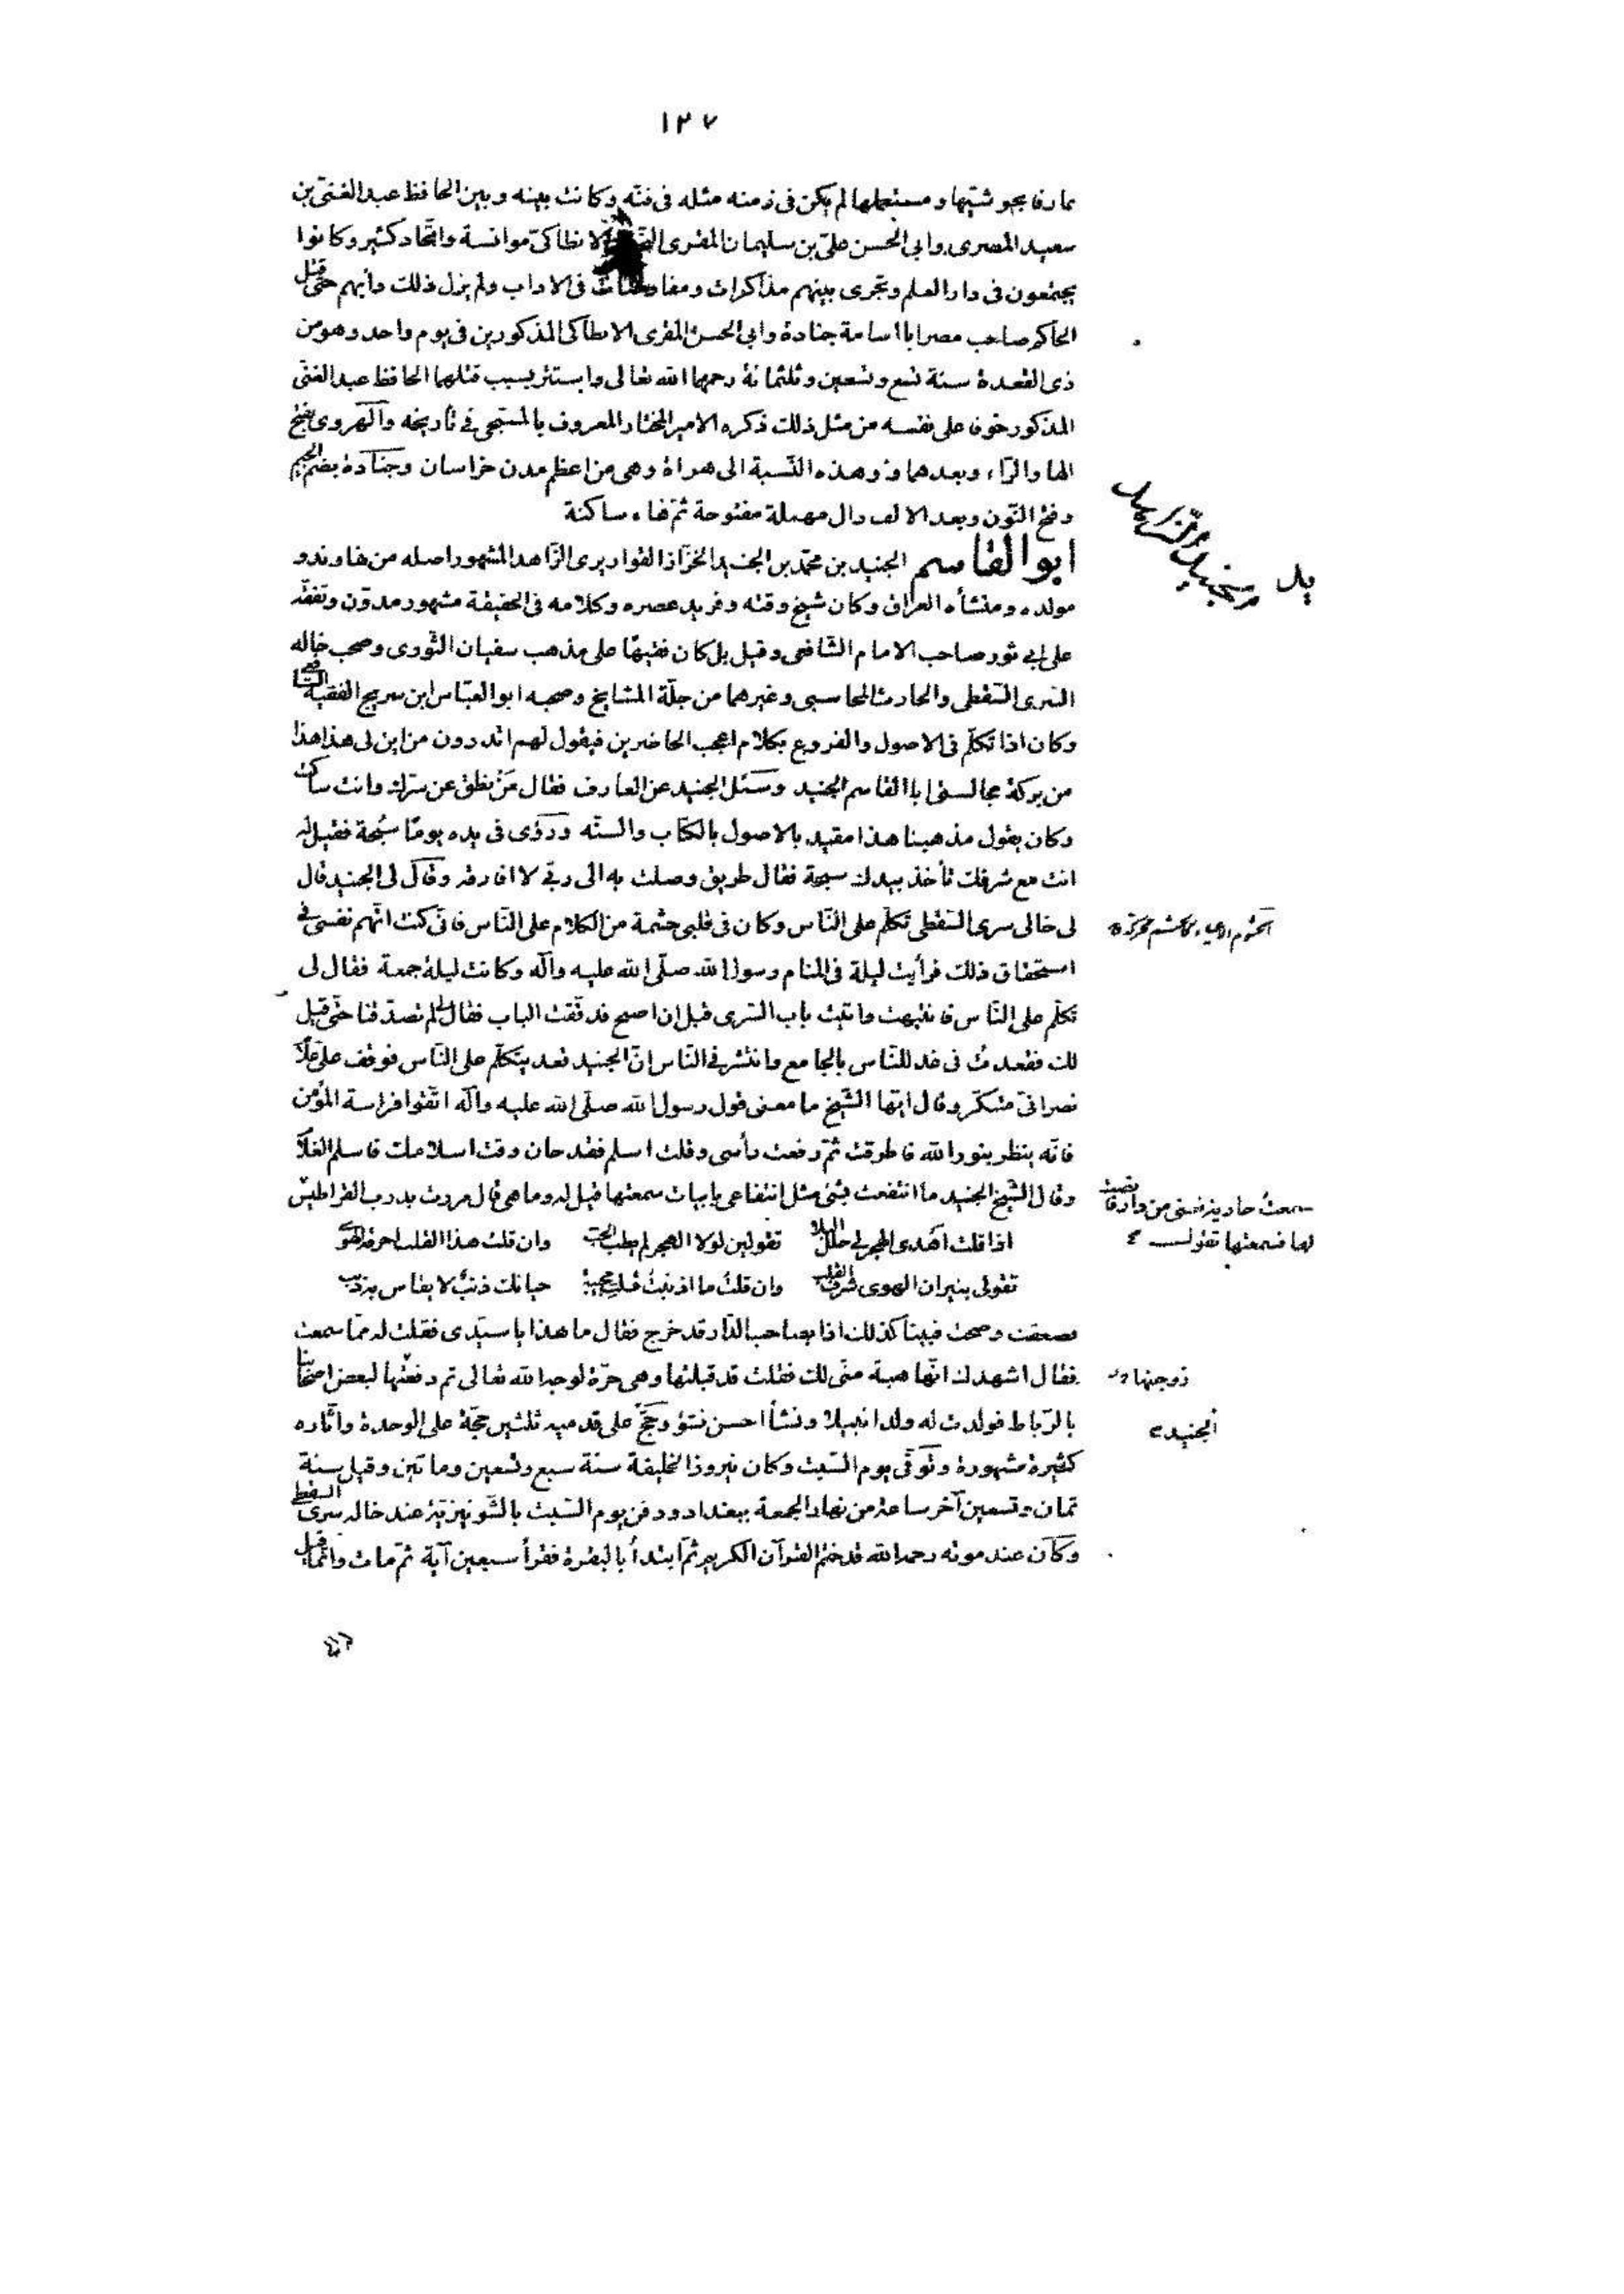 ١٣٧
عارفا بحوشيّها ومستعملها لم يكن فى زمنه مثله فى فنّه وكانت بينه وبين الحافظ عبد الغنىّ بن
سعيد المصرى وابى الحسن علىّ بن سليمان المقرى الانطاكىّ موانسة واتّحاد كثير وكانوا
يجتمعون فى دار العلم وتجرى بينهم مذاكرات ومفاوضات فى الاداب ولم يزل ذلك دأبهم حتّى قتل
الحاكم صاحب مصر ابا اسامة جنادة وابى الحسن المقرى الانطاكى المذكورين فى يوم واحد وهو من
ذى القعدة سنة تسع وتسعين وثلثمائة رحمهما الله تعالى واستتر بسبب قتلهما الحافظ عبد الغنى
المذكور خوفا على نفسه من مثل ذلك ذكره الامير المختار المعروف بالمسبّحى فى تأريخه والهروى بفتح
الها والرّاء وبعدها و وهذه النّسبة الى هراة وهى من اعظم مدن خراسان وجنادة بضم الجيم
وفتح النّون وبعد الالف دال مهملة مفتوحة ثمّ هاء ساكنة
ابو القاسم الجنيد بن محمّد بن الجنيد الخزّاز القواريرى الزّاهد المشهور اصله من نهاوند و
مولده ومنشأه العراق وكان شيخ وقته وفريد عصره وكلامه فى الحقيقة مشهور مدوّن وتفقّه
على ابى ثور صاحب الامام الشّافعى وقيل بل كان فقيهًا على مذهب سفيان الثّورى وصحب خاله
السّرى السّقطى والحارث المحاسبى وغيرهما من جلّة المشايخ وصحبه ابو العبّاس ابن سريج الفقيه الشّافعى
وكان اذا تكلّم فى الاصول والفروع بكلام اعجب الحاضرين فيقول لهم اتدرون من اين لى هذا هذا
من بركة مجالستى ابا القاسم الجنيد وسئل الجنيد عن العارف فقال مَن نطق عن سرّك وانت ساكت
وكان يقول مذهبنا هذا مقيد بالاصول بالكتاب والسنّه ورؤى فى يده يومًا سُبحة فقيل له
انت مع شرفك تأخذ بيدك سبحة فقال طريق وصلت به الى ربّى لا افارقه وقال لى الجنيد قال
لى خالى سرى السّقطى تكلّم على النّاس وكان فى قلبى حشمة من الكلام على النّاس فانّى كنت اتّهم نفسى فى
استحقاق ذلك فرأيت ليلة فى المنام رسول الله صلّى الله عليه وآله وكانت ليلة جمعة فقال لى
تكلّم على النّاس فانتبهت واتيت باب السّرى قبل ان اصبح فدقّقت الباب فقال لم تصدّقنا حتّى قيل
لك فقعدتُ فى غد للنّاس بالجامع وانتشر فى النّاس انّ الجنيد قعد يتكلّم على النّاس فوقف علىّ غلام
نصرانىّ متنكّر وقال ايّها الشّيخ ما معنى قول رسول الله صلّى الله عليه وآله اتّقوا فراسة المؤمن
فانّه ينظر بنور الله فاطرقت ثمّ رفعت رأسى وقلت اسلم فقد حان وقت اسلامك فاسلم الغلام
وقال الشّيخ الجنيد ما انتفعت بشىء مثل انتفاعى بابيات سمعتها قيل له وما هى قال مررت بدرب القراطيس
اذا قلت اهدى الهجر لى حلل البلا تقولين لولا الهجر لم يطب الحبّ وان قلت هذا القلب احرقه الهوى
تقولى بنيران الهوى شرف القلب وان قلتُ ما اذنبتُ قلتِ مجيبة حياتك ذنبٌ لا يقاس به ذنب
فصعقت وصحت فبينا كذلك اذا بصاحب الدّار قد خرج فقال ما هذا يا سيّدى فقلت له ممّا سمعت
فقال اشهدك انّها هبة منّى لك فقلت قد قبلتها وهى حرّة لوجه الله تعالى ثم دفعتها لبعض اصحابنا
بالرّباط فولدت له ولدا نبيلا ونشأ احسن نشؤ وحجّ على قدميه ثلثين حجّة على الوحدة وآثاره
كثيرة مشهورة وتوفّى يوم السّبت وكان نيروز الخليفة سنة سبع وتسعين وماتين وقيل سنة
ثمان وتسعين آخر ساعة من نهار الجمعة ببغداد ودفن يوم السّبت بالشّونيزيّة عند خاله سرى السقطى
وكان عند موته رحمه الله قد ختم القرآن الكريم ثمّ ابتدأ بالبقرة فقرأ سبعين آية ثمّ مات وانّما قيل
سمعتُ جارية تغنى من دار فانصت
لها فسمعتها تقول
زوجتها
الجنيد